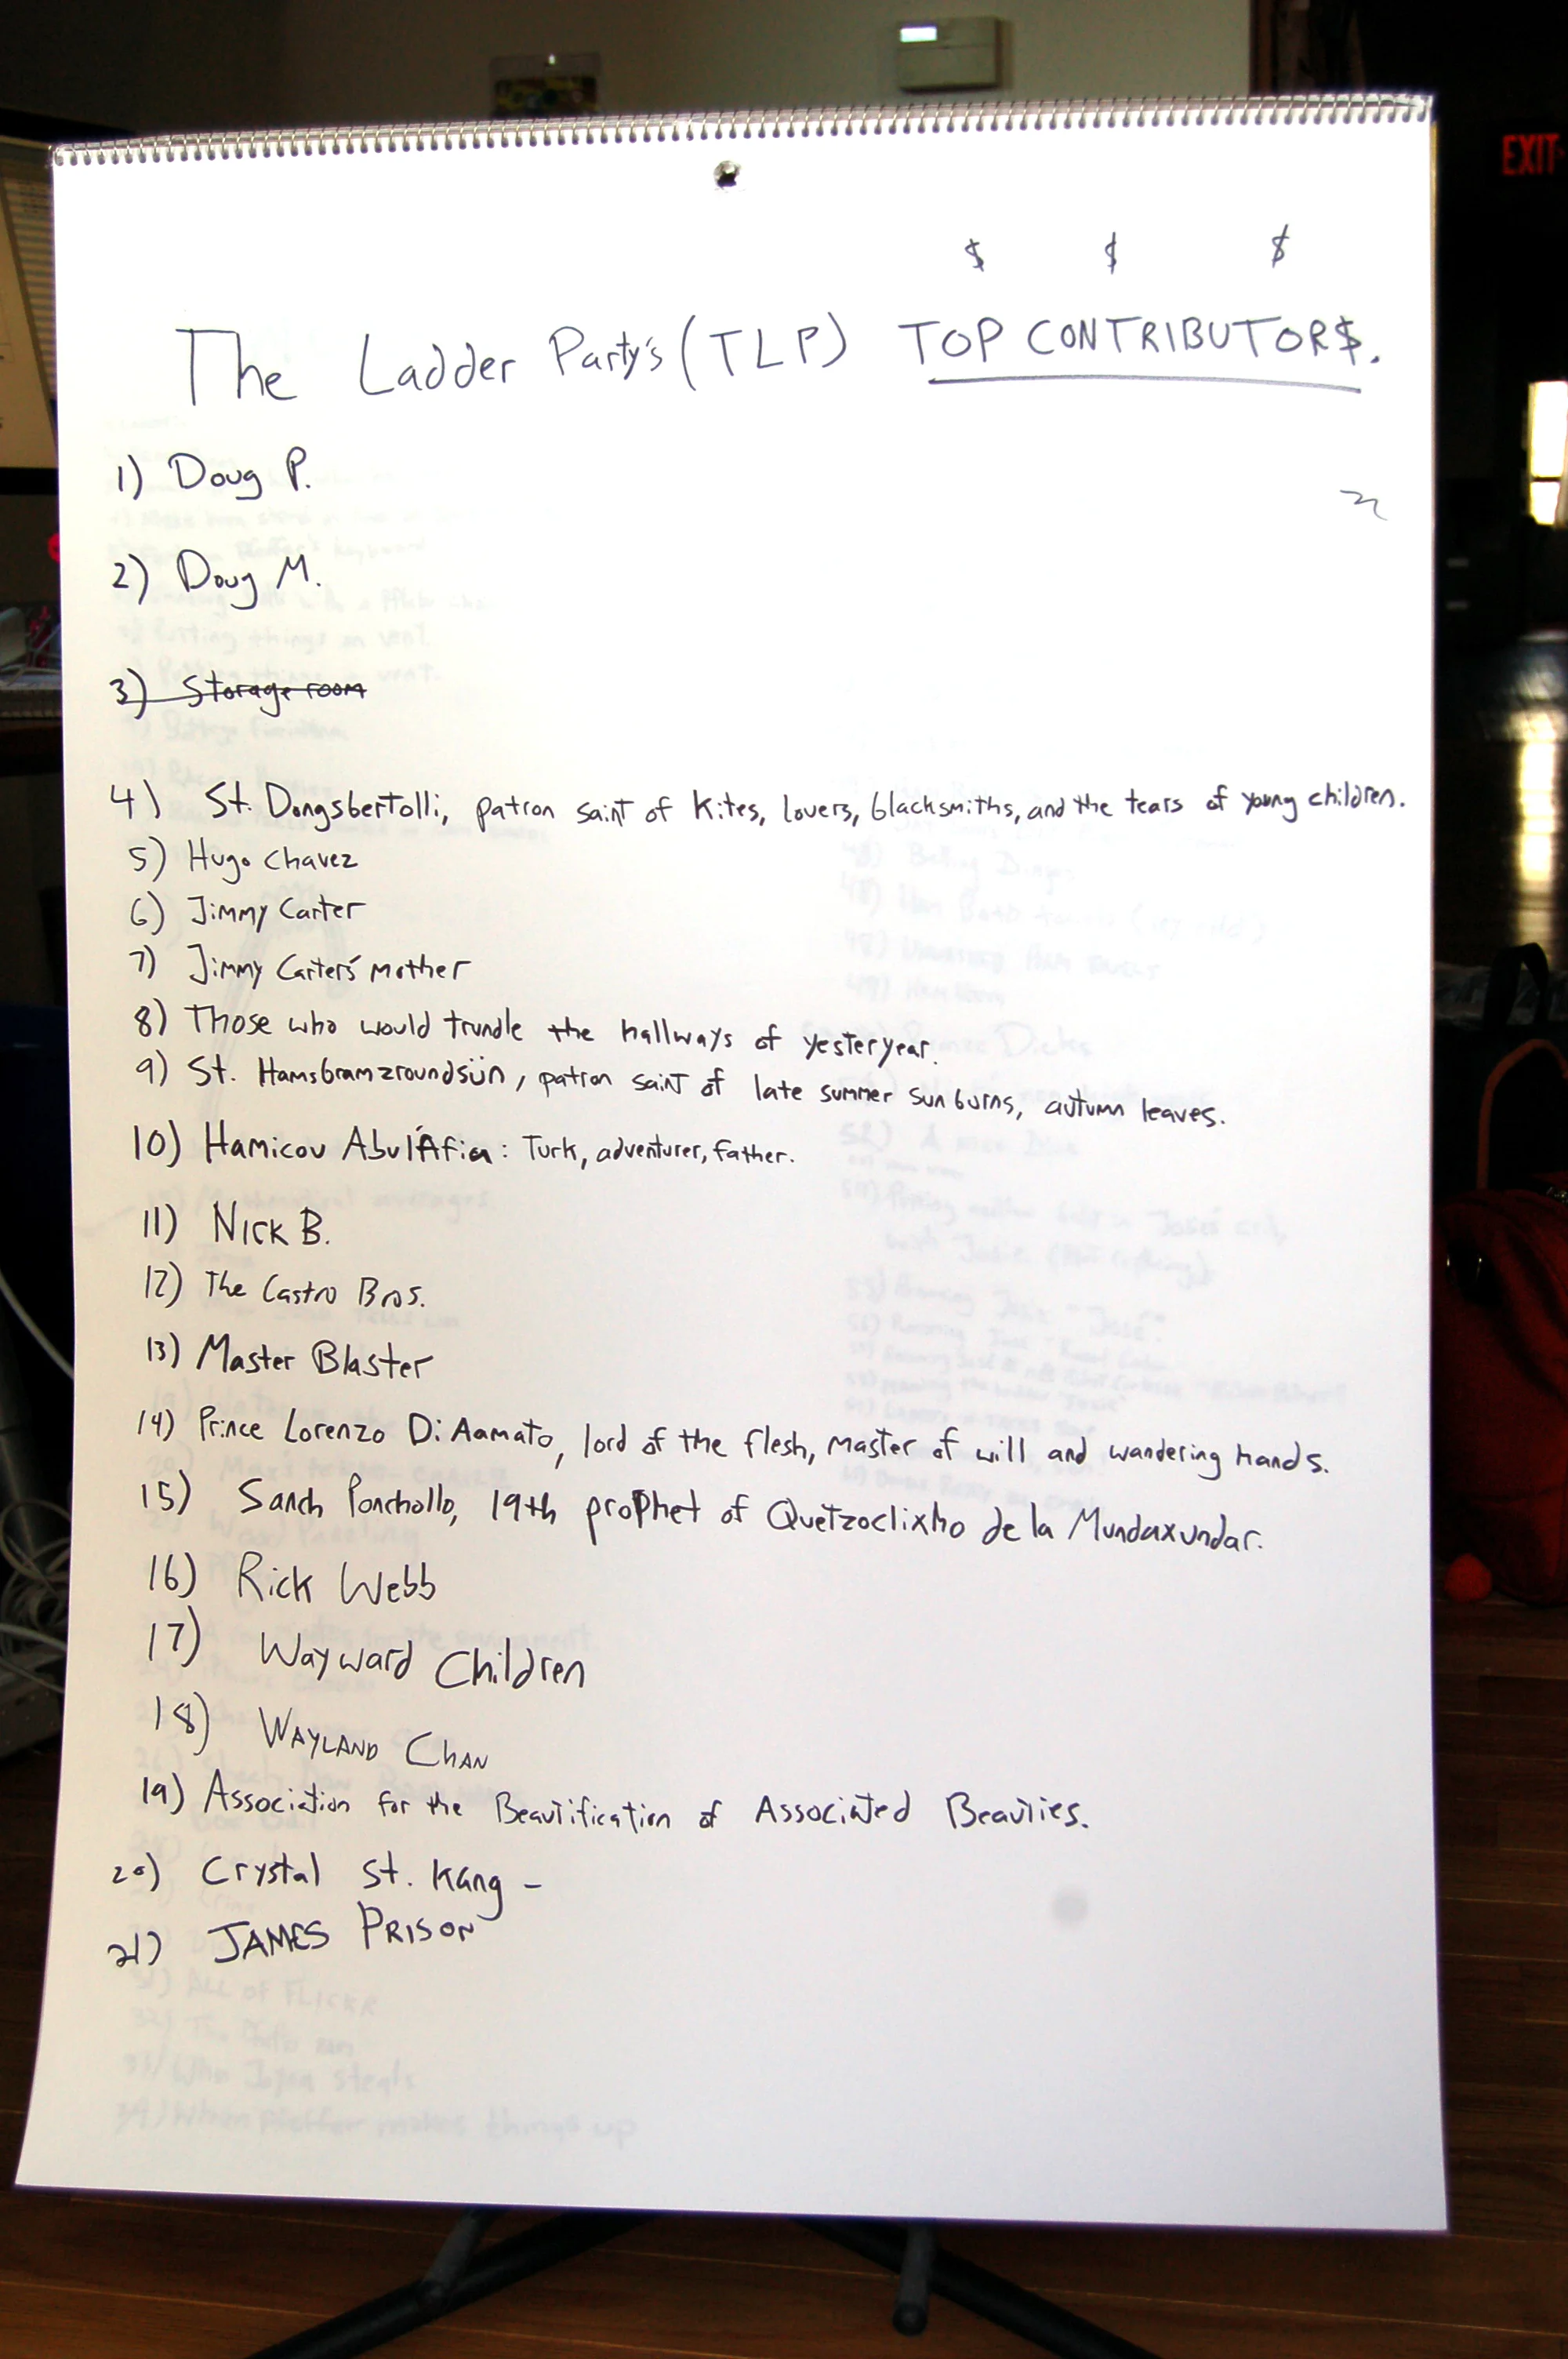 EXIT
$ $ $
The Ladder Party's (TLP) TOP CONTRIBUTOR$.
1) Doug P.
2) Doug M.
3) Storage room
4) St. Dongsbertolli, patron saint of kites, lovers, blacksmiths, and the tears of young children.
5) Hugo Chavez
6) Jimmy Carter
7) Jimmy Carter's mother
8) Those who would trundle the hallways of yesteryear.
9) St. Hamsbramzroundsün, patron saint of late summer sunburns, autumn leaves.
10) Hamicou Abul'Afia: Turk, adventurer, father.
11) NICK B.
12) The Castro Bros.
13) Master Blaster
14) Prince Lorenzo Di Aamato, lord of the flesh, master of will and wandering hands.
15) Sanch Ponchollo, 19th prophet of Quetzoclixho de la Mundaxundar.
16) Rick Webb
17) Wayward Children
18) WAYLAND CHAN
19) Association for the Beautification of Associated Beauties.
20) Crystal St. Kang -
21) JAMES PRISON
ALL OF FLICKR
steals
makes things up